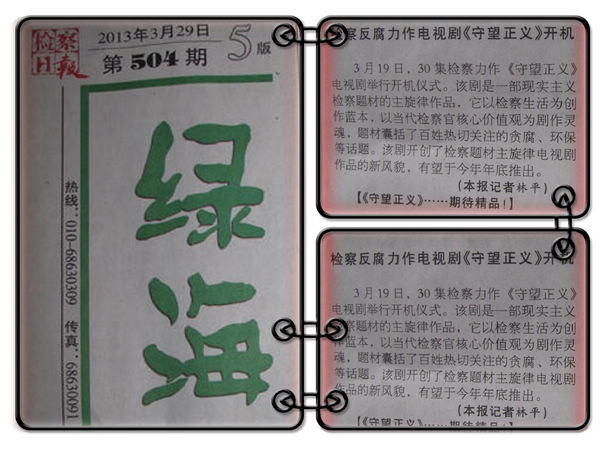 检察
日报
2013年3月29日
第504期
5版
绿海
热线:010-68630309 传真:68630091
检察反腐力作电视剧《守望正义》开机
3月19日,30集检察力作《守望正义》
电视剧举行开机仪式。该剧是一部现实主义
检察题材的主旋律作品,它以检察生活为创
作蓝本,以当代检察官核心价值观为剧作灵
魂,题材囊括了百姓热切关注的贪腐、环保
等话题。该剧开创了检察题材主旋律电视剧
作品的新风貌,有望于今年年底推出。
(本报记者林平)
【《守望正义》……期待精品!】
检察反腐力作电视剧《守望正义》开机
3月19日,30集检察力作《守望正义》
电视剧举行开机仪式。该剧是一部现实主义
检察题材的主旋律作品,它以检察生活为创
作蓝本,以当代检察官核心价值观为剧作灵
魂,题材囊括了百姓热切关注的贪腐、环保
等话题。该剧开创了检察题材主旋律电视剧
作品的新风貌,有望于今年年底推出。
(本报记者林平)